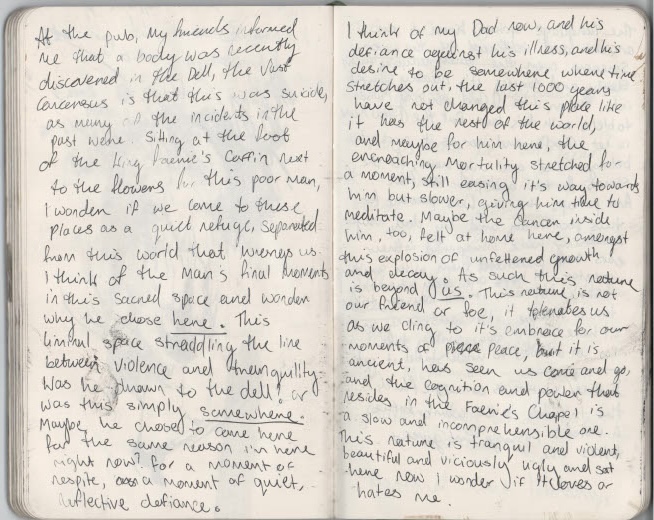 At the pub, my friends informed
me that a body was recently
discovered in the Dell, the vast
concensus is that this was suicide,
as many of the incidents in the
past were. Sitting at the foot
of the King Faerie's Coffin next
to the flowers for this poor man,
I wonder if we come to these
places as a quiet refuge, separated
from this world that wrongs us.
I think of the man's final moments
in this sacred space and wonder
why he chose here. This
liminal space straddling the line
between violence and tranquility.
Was he drawn to the dell? or
was this simply somewhere.
Maybe, he chose to come here
for the same reason I'm here
right now? for a moment of
respite, a moment of quiet,
reflective defiance.
I think of my Dad now, and his
defiance against his illness, and his
desire to be somewhere where time
stretches out, the last 1000 years
have not changed this place like
it has the rest of the world,
and maybe for him here, the
encroaching mortality stretched for
a moment, still easing it's way towards
him but slower, giving him time to
meditate. Maybe the cancer inside
him, too, felt at home here, amongst
this explosion of unfettered growth
and decay. As such this nature
is beyond us. This nature is not
our friend or foe, it tolerates us
as we cling to it's embrace for our
moments of peace, but it is
ancient, has seen us come and go,
and the cognition and power that
resides in the Faerie's Chapel is
a slow and incomprehensible one.
This nature is tranquil and violent,
beautiful and viciously ugly and sat
here now I wonder if it loves or
hates me.